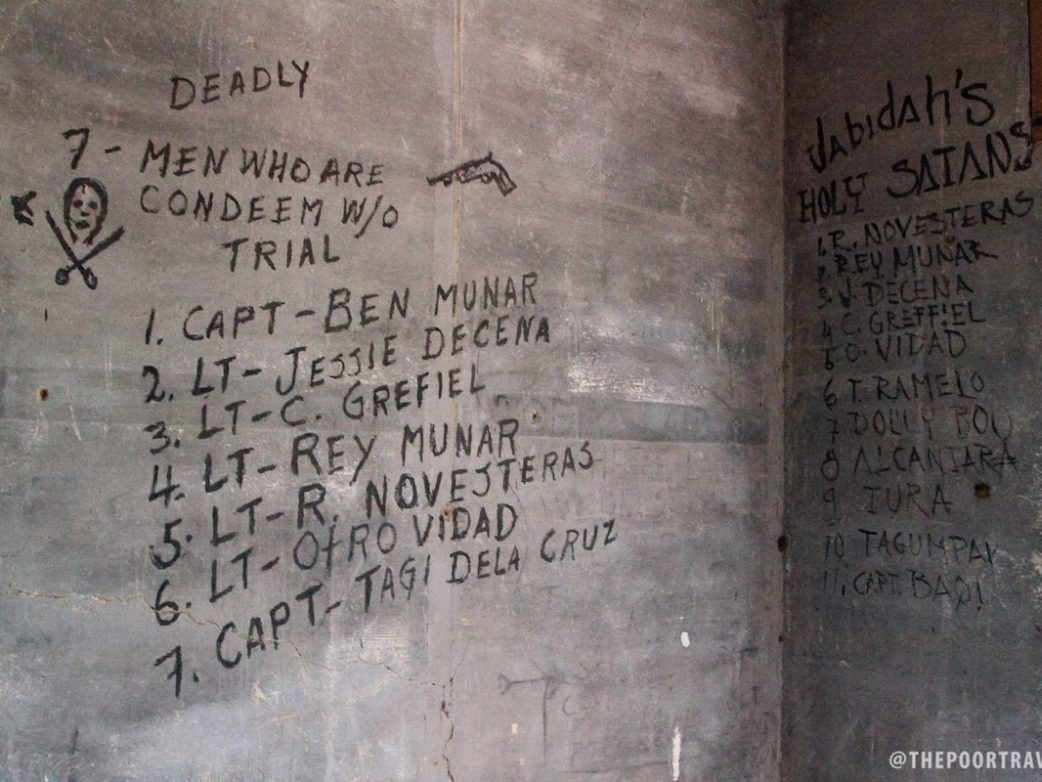 DEADLY
7 - MEN WHO ARE
CONDEEM W/O
TRIAL
1. CAPT - BEN MUNAR
2. LT - JESSIE DECENA
3. LT - C. GREFIEL
4. LT - REY MUNAR
5. LT - R. NOVESTERAS
6. LT - OtRO VIDAD
7. CAPT - TAGI DELA CRUZ
Jabidah's
HOLY SATANS
1. R. NOVESTERAS
2. REY MUNAR
3. J. DECENA
4 C. GREFFIEL
5 O. VIDAD
6 T. RAMELO
7 DOLLY
8 ALCANTARA
9 TURA
10 TAGUMPAY
11. CAPT.
@THEPOORTRAV